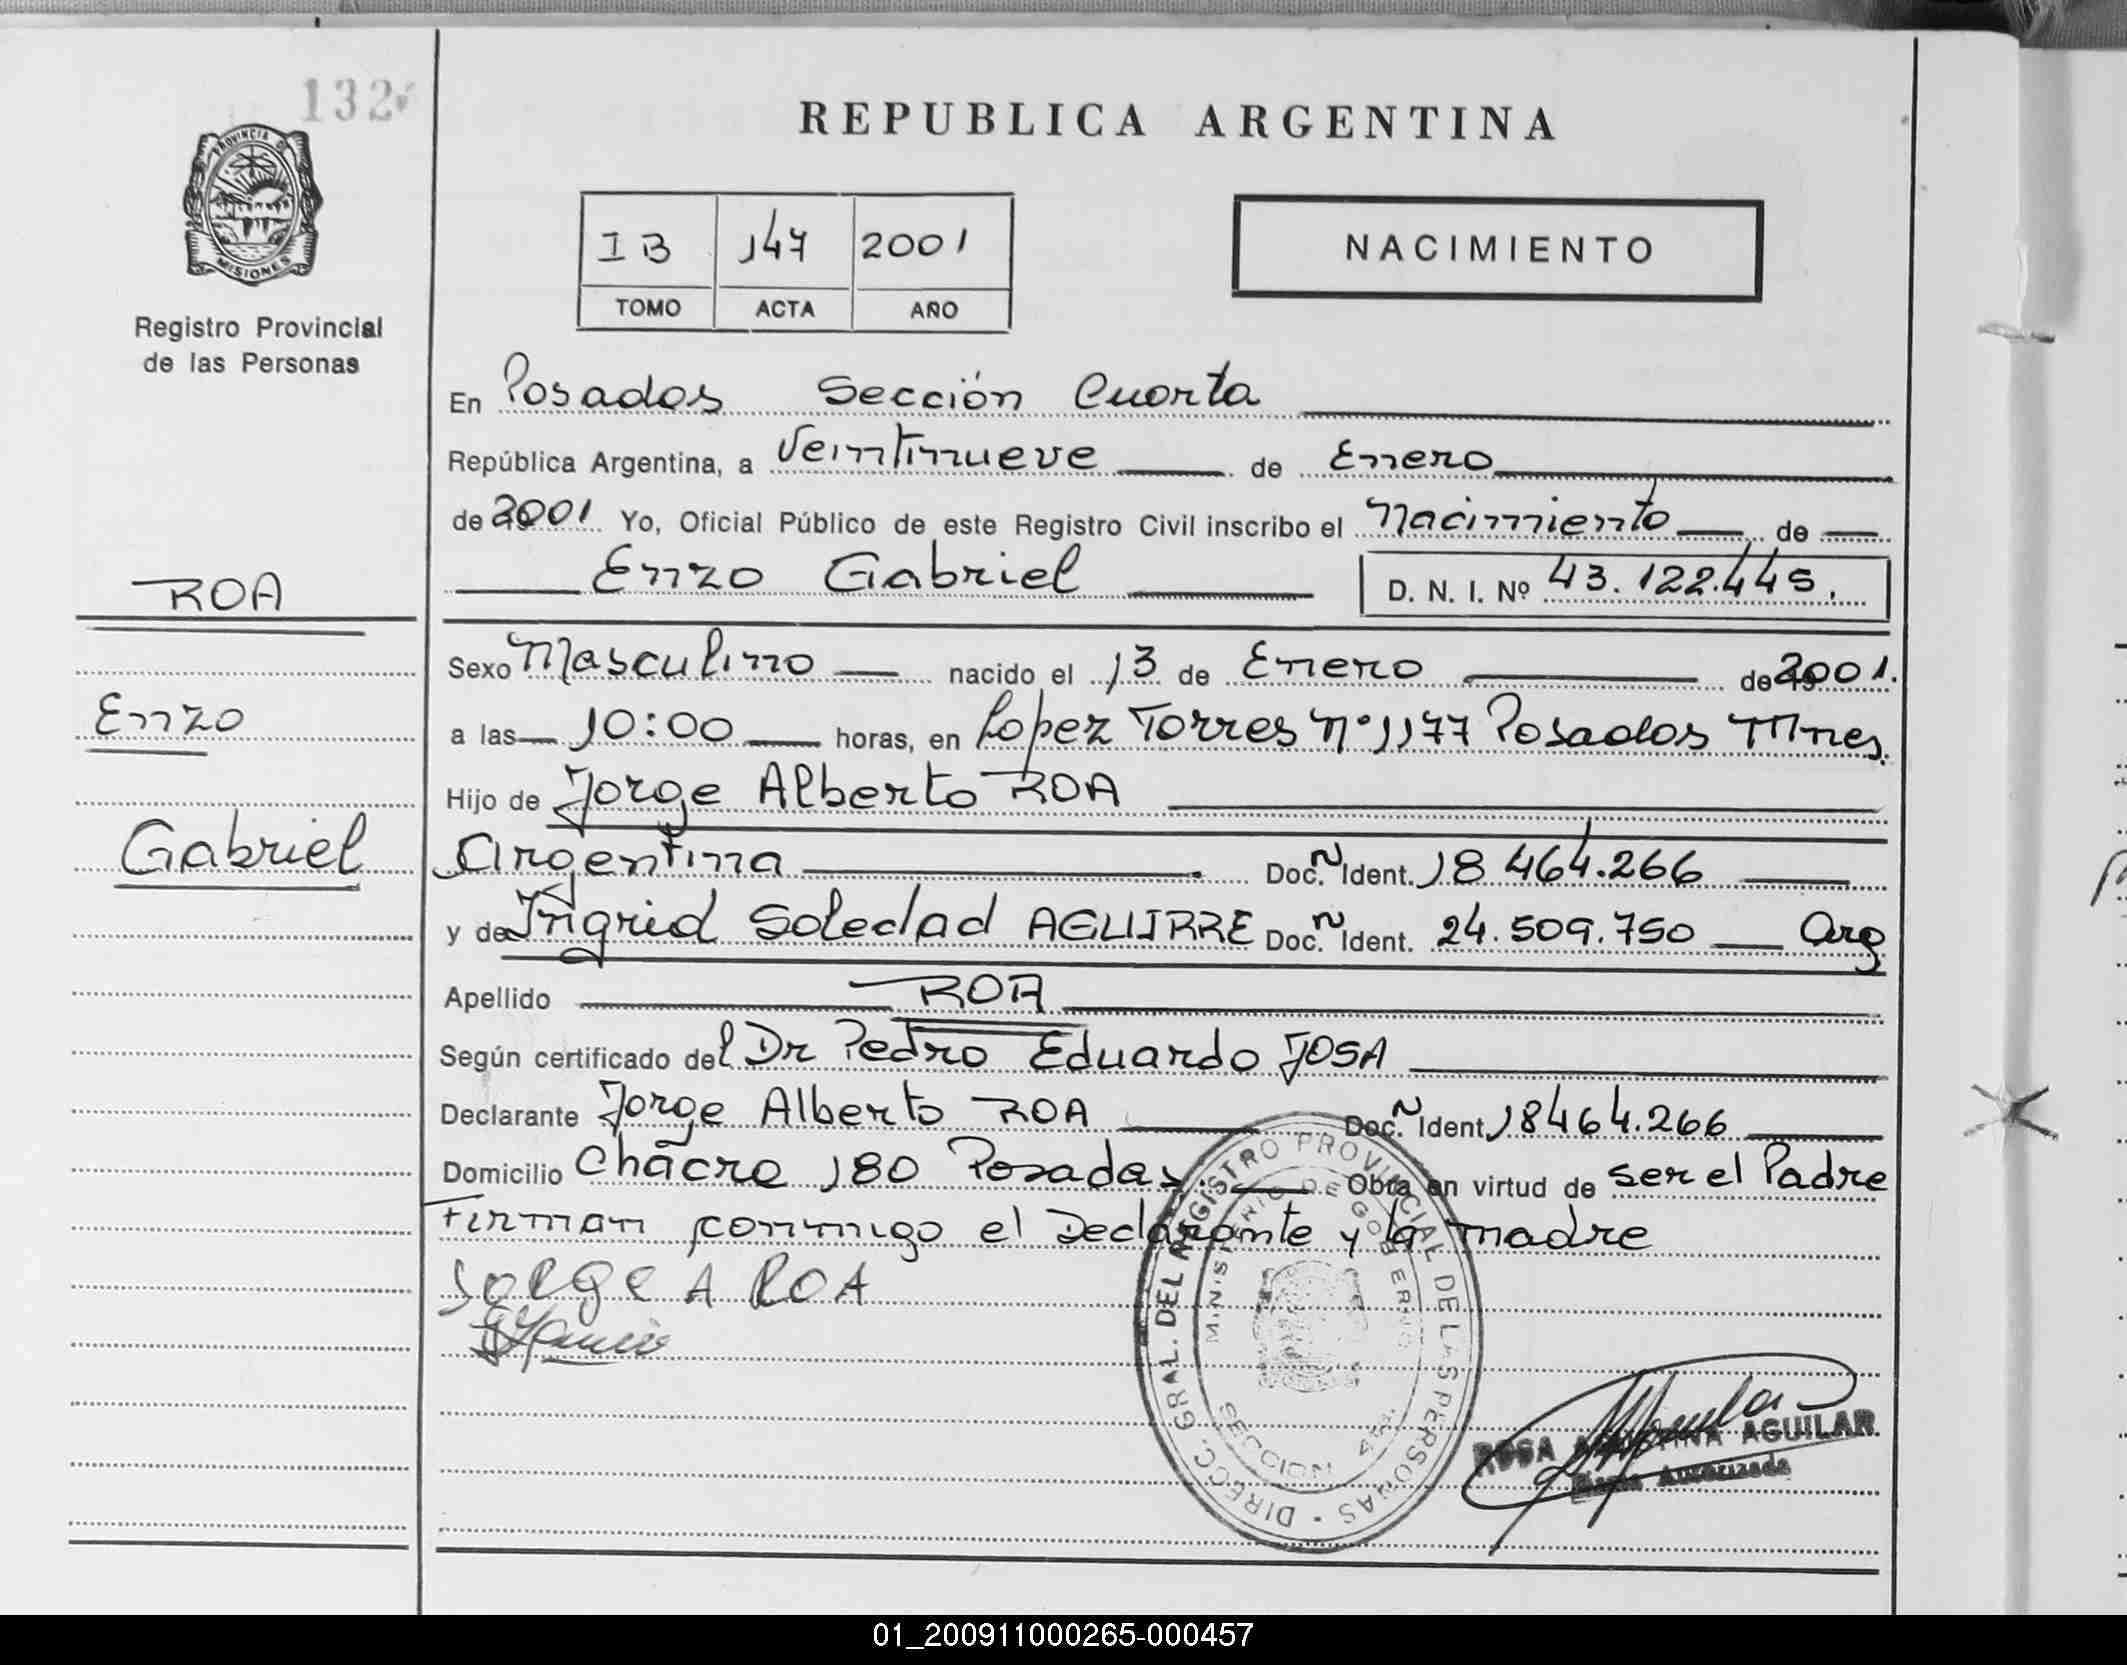 132
PROVINCIA DE
MISIONES
Registro Provincial
de las Personas
ROA
Enzo
Gabriel
REPUBLICA ARGENTINA
IB 147 2001
TOMO ACTA AÑO
NACIMIENTO
En Posadas Sección Cuarta
República Argentina, a Veintinueve de Enero
de 2001 Yo, Oficial Público de este Registro Civil inscribo el Nacimiento de
Enzo Gabriel D. N. I. Nº 43.122.445.
Sexo Masculino nacido el 13 de Enero de 2001.
a las 10:00 horas, en Lopez Torres Nº 1177 Posadas Mnes.
Hijo de Jorge Alberto ROA
Argentina Doc. N Ident. 18 464.266
y de Ingrid Soledad AGUIRRE Doc. N Ident. 24.509.750 Arg
Apellido ROA
Según certificado del Dr Pedro Eduardo JOSA
Declarante Jorge Alberto ROA Doc. N Ident. 18464.266
Domicilio Chacra 180 Posadas Obra en virtud de ser el Padre
Firman conmigo el Declarante y la madre
JORGE A ROA
DIRECC. GRAL. DEL REGISTRO PROVINCIAL DE LAS PERSONAS
MINISTERIO DE GOBIERNO
SECCION 4ta.
ROSA AGUILAR
Firma Autorizada
01_200911000265-000457